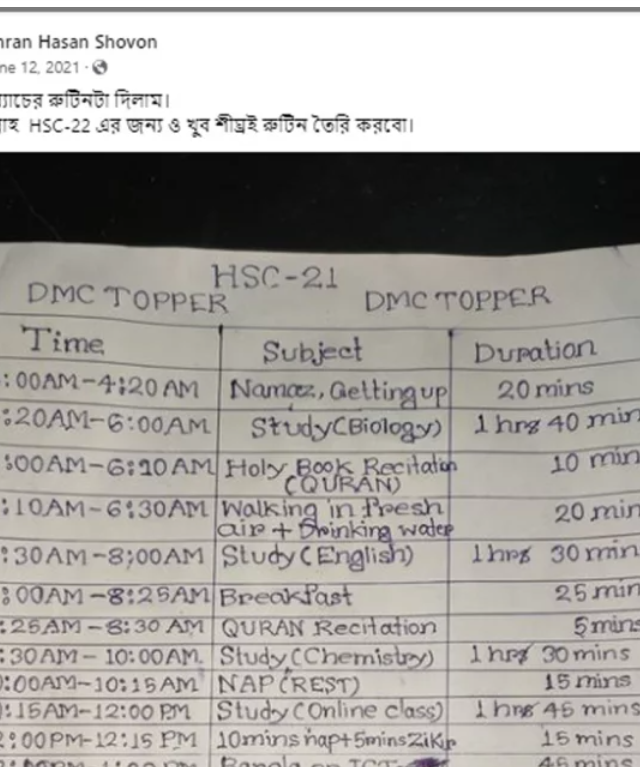 nran Hasan Shovon
ne 12, 2021
্যাচের রুটিনটা দিলাম।
লাহ HSC-22 এর জন্য ও খুব শীঘ্রই রুটিন তৈরি করবো।
HSC-21
DMC TOPPER DMC TOPPER
Time Subject Duration
:00AM-4:20 AM Namaz, Getting up 20 mins
:20AM-6:00AM Study(Biology) 1 hrs 40 min
:00AM-6:10AM Holy Book Recitation 10 min
(QURAN)
:10AM-6:30AM Walking in Fresh 20 min
air + Drinking water
:30AM-8:00AM Study(English) 1hrs 30 min
:00AM-8:25AM Breakfast 25 min
:25AM-8:30 AM QURAN Recitation 5 mins
:30AM-10:00AM. Study(Chemistry) 1 hrs 30 mins
:00AM-10:15AM NAP (REST) 15 mins
:15AM-12:00 PM Study(Online class) 1 hrs 45 mins
2:00PM-12:15 PM 10mins nap+5mins Zikir 15 mins
Bangla or ICT 45 mins